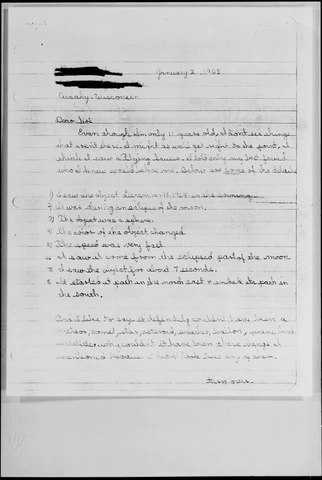 January 2, 1968
Cudahy, Wisconsin
Dear Sir:
Even though I'm only 11 years old, I don't see things
that aren't there. I might as well get right to the point, I
think I saw a Flying Saucer. I told only my best friend
who I knew would believe me. Below are some of the details
1) I saw the object December 13, in the evening.
2) It was during an eclipse of the moon.
3) The object was a sphere.
4) The color of the object changed.
5) The speed was very fast.
6) I saw it come from the eclipsed part of the moon.
7) I saw the object for about 7 seconds.
8) It started its path in the north east & ended its path in
the south.
And I'd like to say, it definitely couldn't have been a
meteor, comet, star, asteroid, balloon, plane, bird,
satellite, why couldn't it have been these things I
mentioned because it didn't look like any of them.
turn over